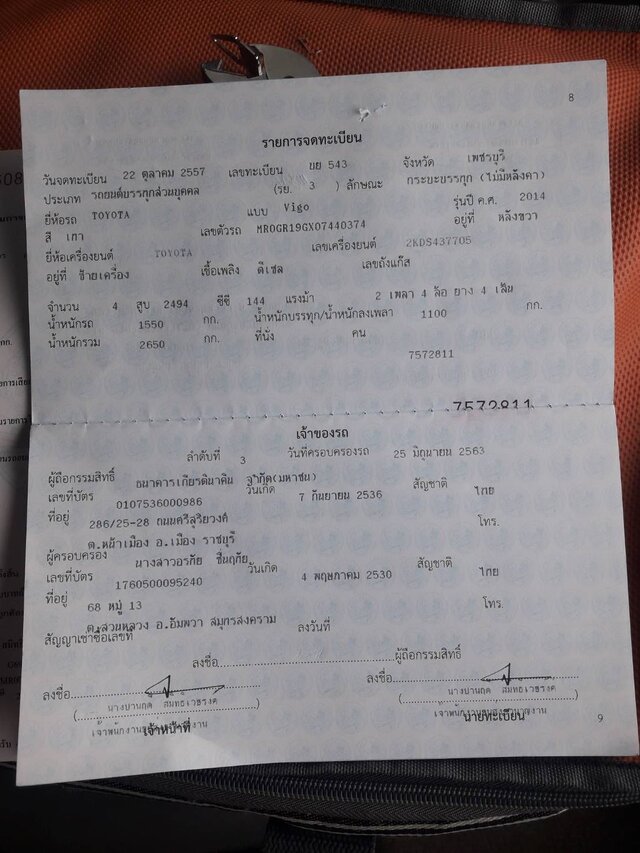 8
รายการจดทะเบียน
วันจดทะเบียน 22 ตุลาคม 2557 เลขทะเบียน ขย 543 จังหวัด เพชรบุรี
ประเภท รถยนต์บรรทุกส่วนบุคคล (รย. 3 ) ลักษณะ กระบะบรรทุก (ไม่มีหลังคา)
ยี่ห้อรถ TOYOTA แบบ Vigo รุ่นปี ค.ศ. 2014
สี เทา เลขตัวรถ MR0GR19GX07440374 อยู่ที่ หลังขวา
ยี่ห้อเครื่องยนต์ TOYOTA เลขเครื่องยนต์ 2KDS437705
อยู่ที่ ซ้ายเครื่อง เชื้อเพลิง ดีเซล เลขถังแก๊ส
จำนวน 4 สูบ 2494 ซีซี 144 แรงม้า 2 เพลา 4 ล้อ ยาง 4 เส้น
น้ำหนักรถ 1550 กก. น้ำหนักบรรทุก/น้ำหนักลงเพลา 1100 กก.
น้ำหนักรวม 2650 กก. ที่นั่ง คน
7572811
7572811
เจ้าของรถ
ลำดับที่ 3 วันที่ครอบครองรถ 25 มิถุนายน 2563
ผู้ถือกรรมสิทธิ์ ธนาคารเกียรตินาคิน จำกัด(มหาชน)
เลขที่บัตร 0107536000986 วันเกิด 7 กันยายน 2536 สัญชาติ ไทย
ที่อยู่ 286/25-28 ถนนศรีสุริยวงศ์ โทร.
ต.หน้าเมือง อ.เมือง ราชบุรี
ผู้ครอบครอง นางสาวอรภัย ชื่นฤทัย
เลขที่บัตร 1760500095240 วันเกิด 4 พฤษภาคม 2530 สัญชาติ ไทย
ที่อยู่ 68 หมู่ 13 โทร.
ต.สวนหลวง อ.อัมพวา สมุทรสงคราม
สัญญาเช่าซื้อเลขที่ ลงวันที่
ลงชื่อ ผู้ถือกรรมสิทธิ์
ลงชื่อ ลงชื่อ
เจ้าหน้าที่ นายทะเบียน
9